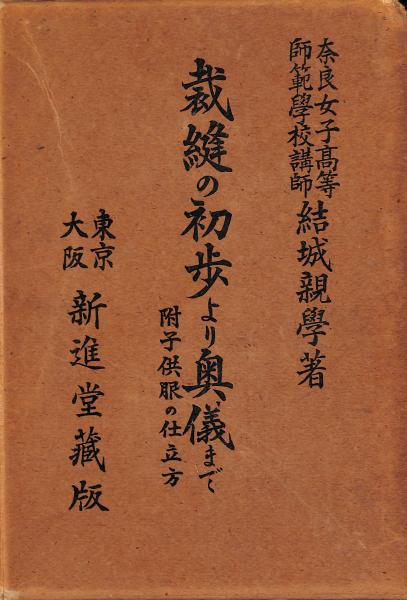 奈良女子高等
師範學校講師
結城親學著
裁縫の初歩より奥儀まで
附子供服の仕立方
東京
大阪
新進堂藏版